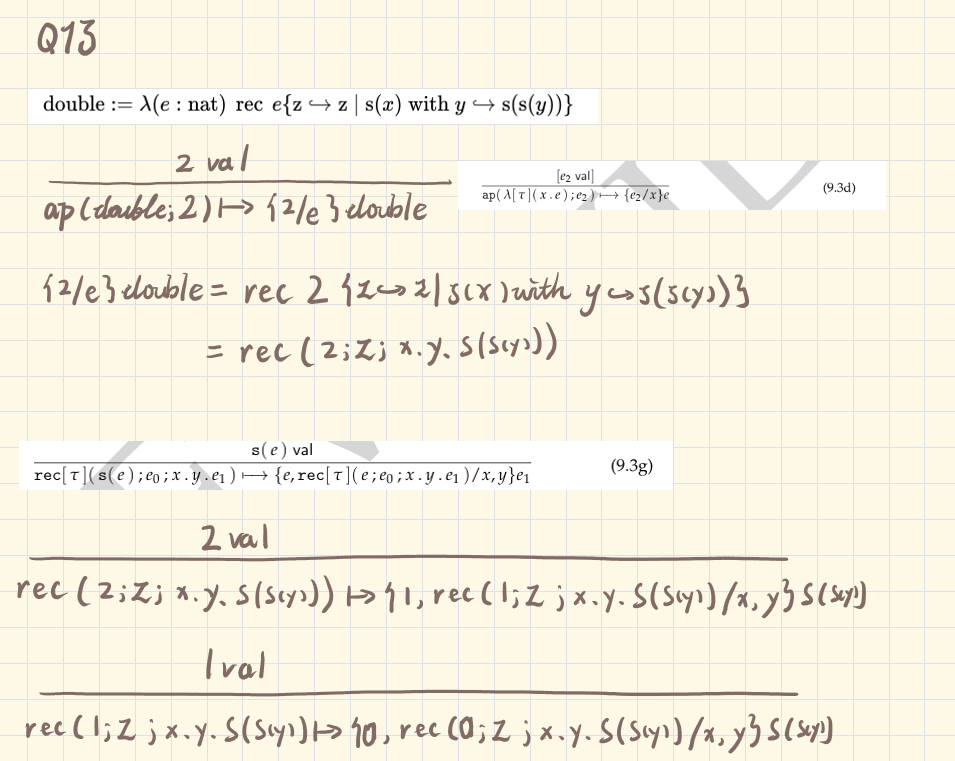 Q13
double := λ(e : nat) rec e{z ↪ z | s(x) with y ↪ s(s(y))}
2 val
ap(double; 2) ↦ {2/e} double
[e₂ val]
ap(λ[τ](x.e); e₂) ↦ {e₂/x}e
(9.3d)
{2/e} double = rec 2 {z ↪ z | s(x) with y ↪ s(s(y))}
= rec (2; z; x.y. s(s(y)))
s(e) val
rec[τ](s(e); e₀; x.y.e₁) ↦ {e, rec[τ](e; e₀; x.y.e₁)/x, y}e₁
(9.3g)
2 val
rec (2; z; x.y. s(s(y))) ↦ {1, rec(1; z; x.y. s(s(y))/x, y} s(s(y))
1 val
rec(1; z; x.y. s(s(y)) ↦ {0, rec(0; z; x.y. s(s(y))/x, y} s(s(y))